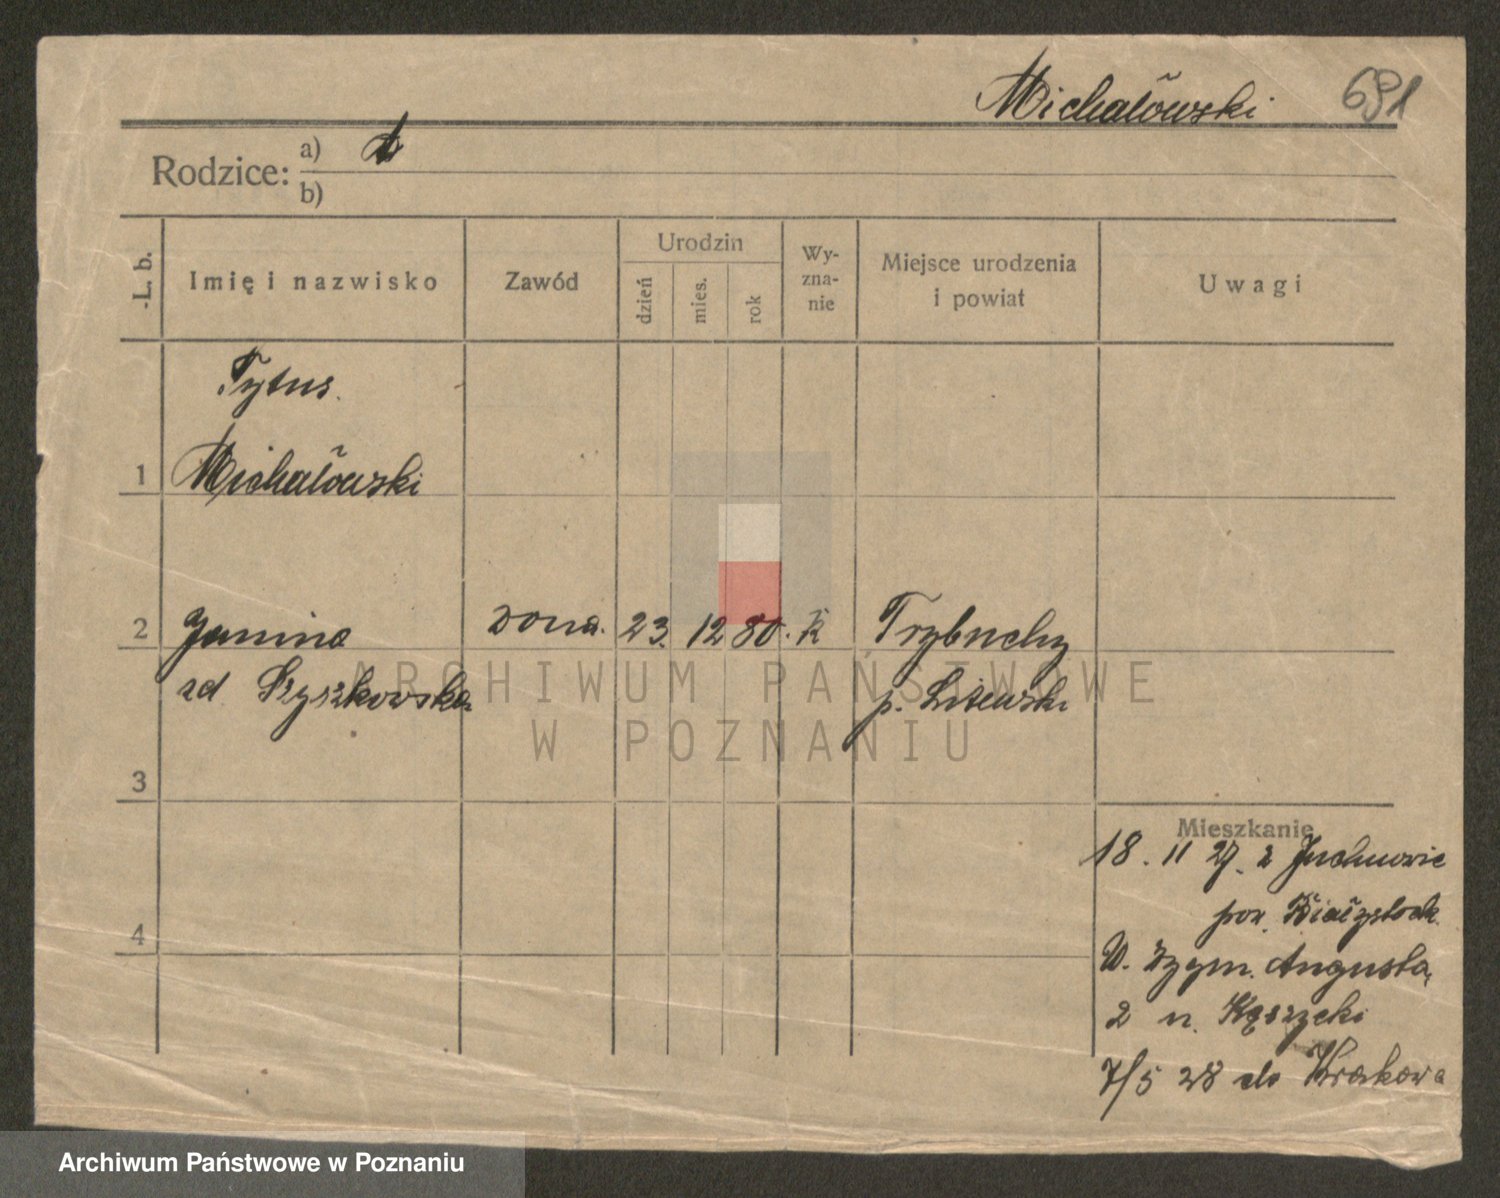 Michalowski 691
Rodzice: a)
b)
L. b.
Imię i nazwisko
Zawód
Urodzin
dzień
mies.
rok
Wy-
zna-
nie
Miejsce urodzenia
i powiat
Uwagi
Tytus
1 Michalowski
2 Janina żona. 23. 12 80. k Trybuchy
zd Szyszkowska p. Litewski
3
4
Mieszkanie
18. 11 27. z Juchnowic
pow. Białystock
W. Zygm. Augusta,
2 u.
7/5 28 do Krakowa
ARCHIWUM PAŃSTWOWE
W POZNANIU
Archiwum Państwowe w Poznaniu